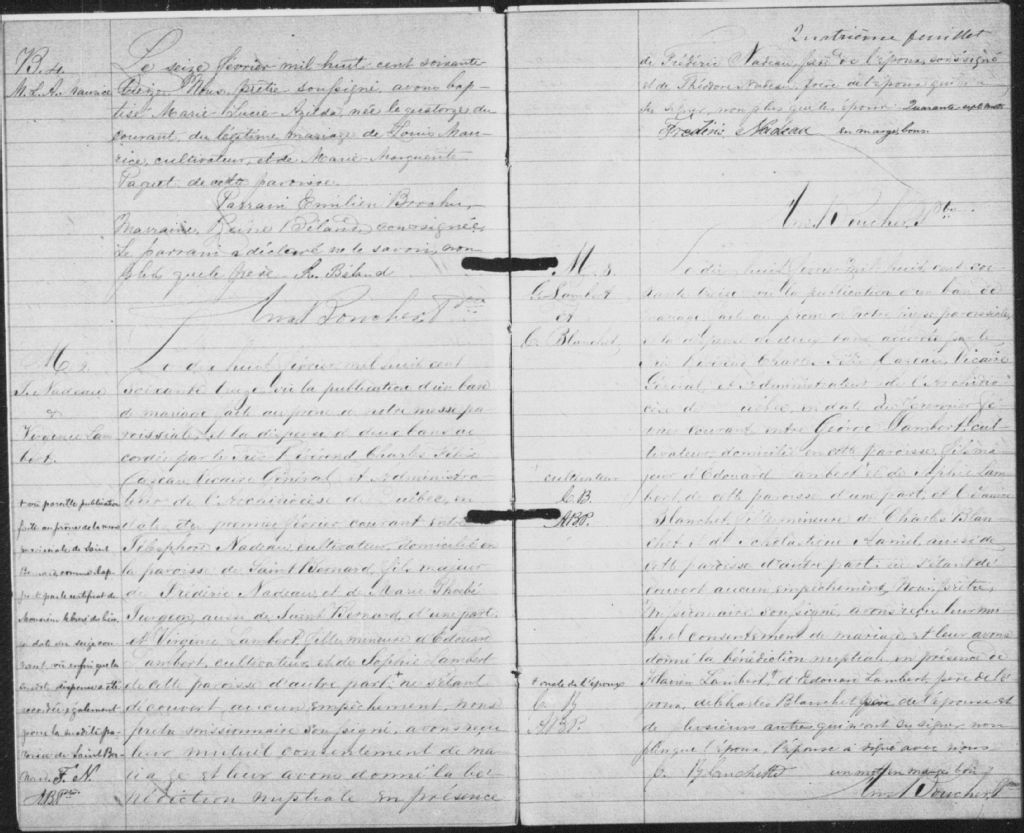 B. 4.
M. L. A. Maurice
Le seize février mil huit cent soixante
treize, Nous, prêtre soussigné, avons bap-
tisé Marie Lucie Azilda, née le quatorze du
courant, du légitime mariage de Louis Mau-
rice, cultivateur, et de Marie Marguerite
Paquet de cette paroisse.
Parrain Emilien
Marraine, Reine Béland, soussignée,
Le parrain a déclaré ne le savoir, non
plus que le père. R. Béland
Boucher, Ptre
M. 2.
Nadeau
&
Virginie Lam-
bert.
Le dix huit février mil huit cent
soixante treize, vu la publication d'un ban
de mariage faite au prône de notre messe pa-
roissiale, et la dispense de deux bans ac-
cordée par le très Révérend Charles Félix
Cazeau Vicaire Général et Administra-
teur de l'Archidiocèse de Québec, en
date du premier février courant entre
Télesphore Nadeau, cultivateur, domicilié en
la paroisse de Saint Bernard, fils majeur
de Frédéric Nadeau, et de Marie Phœbé
Turgeon, aussi de Saint Bernard, d'une part;
et Virginie Lambert, fille mineure d'Edouard
Lambert, cultivateur, et de Sophie Lambert
de cette paroisse d'autre part; + ne s'étant
découvert aucun empêchement, nous
prêtre missionnaire soussigné, avons reçu
leur mutuel consentement de ma-
riage et leur avons donné la bé-
nédiction nuptiale en présence
+ vu pareille publication
faite au prône de la messe
paroissiale de Saint
Bernard comme il ap-
pert par le certificat de
Monsieur le Curé du lieu
en date du seize cou-
rant, vu enfin que la
susdite dispense a été
accordée également
pour la susdite pa-
roisse de Saint Ber-
nard. F. N.
ABPtre
Quatrième feuillet
de Frédéric Nadeau, père de l'époux, soussigné
et de Théodore Nadeau, frère de l'époux, qui n'a
su signer, non plus que les époux. Quarante sept mots
Frédéric Nadeau en marge, bons.
Boucher, Ptre
M. 3.
G. Lambert
et
C. Blanchet
Le dix huit février mil huit cent soi-
xante treize, vu la publication d'un ban de
mariage, faite au prône de notre messe paroissiale,
et la dispense de deux bans accordée par le
très Révérend Charles Félix Cazeau, Vicaire
Général, et Administrateur de l'Archidio-
cèse de Québec, en date du premier fé-
vrier courant, entre George Lambert, cul-
tivateur, domicilié en cette paroisse, fils ma-
jeur d'Edouard Lambert et de Sophie Lam-
bert, de cette paroisse d'une part, et
Blanchet, fille mineure de Charles Blan-
chet et de Scholastique Hamel, aussi de
cette paroisse d'autre part; ne s'étant dé-
couvert aucun empêchement, Nous, prêtre,
missionnaire soussigné, avons reçu leur mu-
tuel consentement de mariage, et leur avons
donné la bénédiction nuptiale en présence de
Flavien Lambert, + d'Edouard Lambert, père de l'é-
poux, de Charles Blanchet père de l'épouse et
de plusieurs autres qui n'ont su signer non
plus que l'époux, l'épouse a signé avec nous
C. Blanchette un mot en marge bon
Boucher, Ptre
cultivateur
C. B.
ABP.
+ oncle de l'époux
C. B.
ABP.